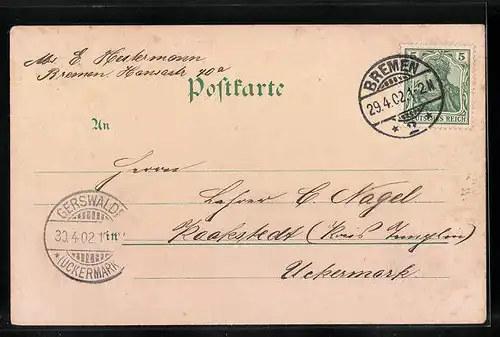 E. Hestermann
Bremen, Hansastr 40a
Postkarte
5 5
DEUTSCHES REICH
BREMEN
29.4.02.1-2N
* 2
An
Herrn
Lehrer C. Nagel
in Kaakstedt (Kreis Templin)
Uckermark.
GERSWALDE
30.4.02.
* (UCKERMARK)